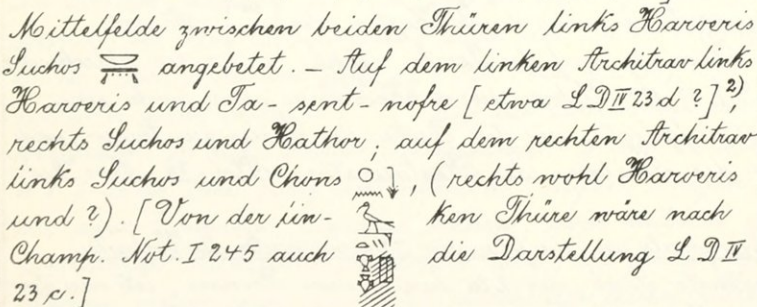 Mittelfelde zwischen beiden Thüren links Haroeris
Suchos angebetet. — Auf dem linken Architrav links
Haroeris und Ta-sent-nofre [etwa L D IV 23 d ?]²⁾,
rechts Suchos und Hathor; auf dem rechten Architrav
links Suchos und Chons, (rechts wohl Haroeris
und ?). [Von der lin- ken Thüre wäre nach
Champ. Not. I 245 auch die Darstellung L D IV
23 c.]